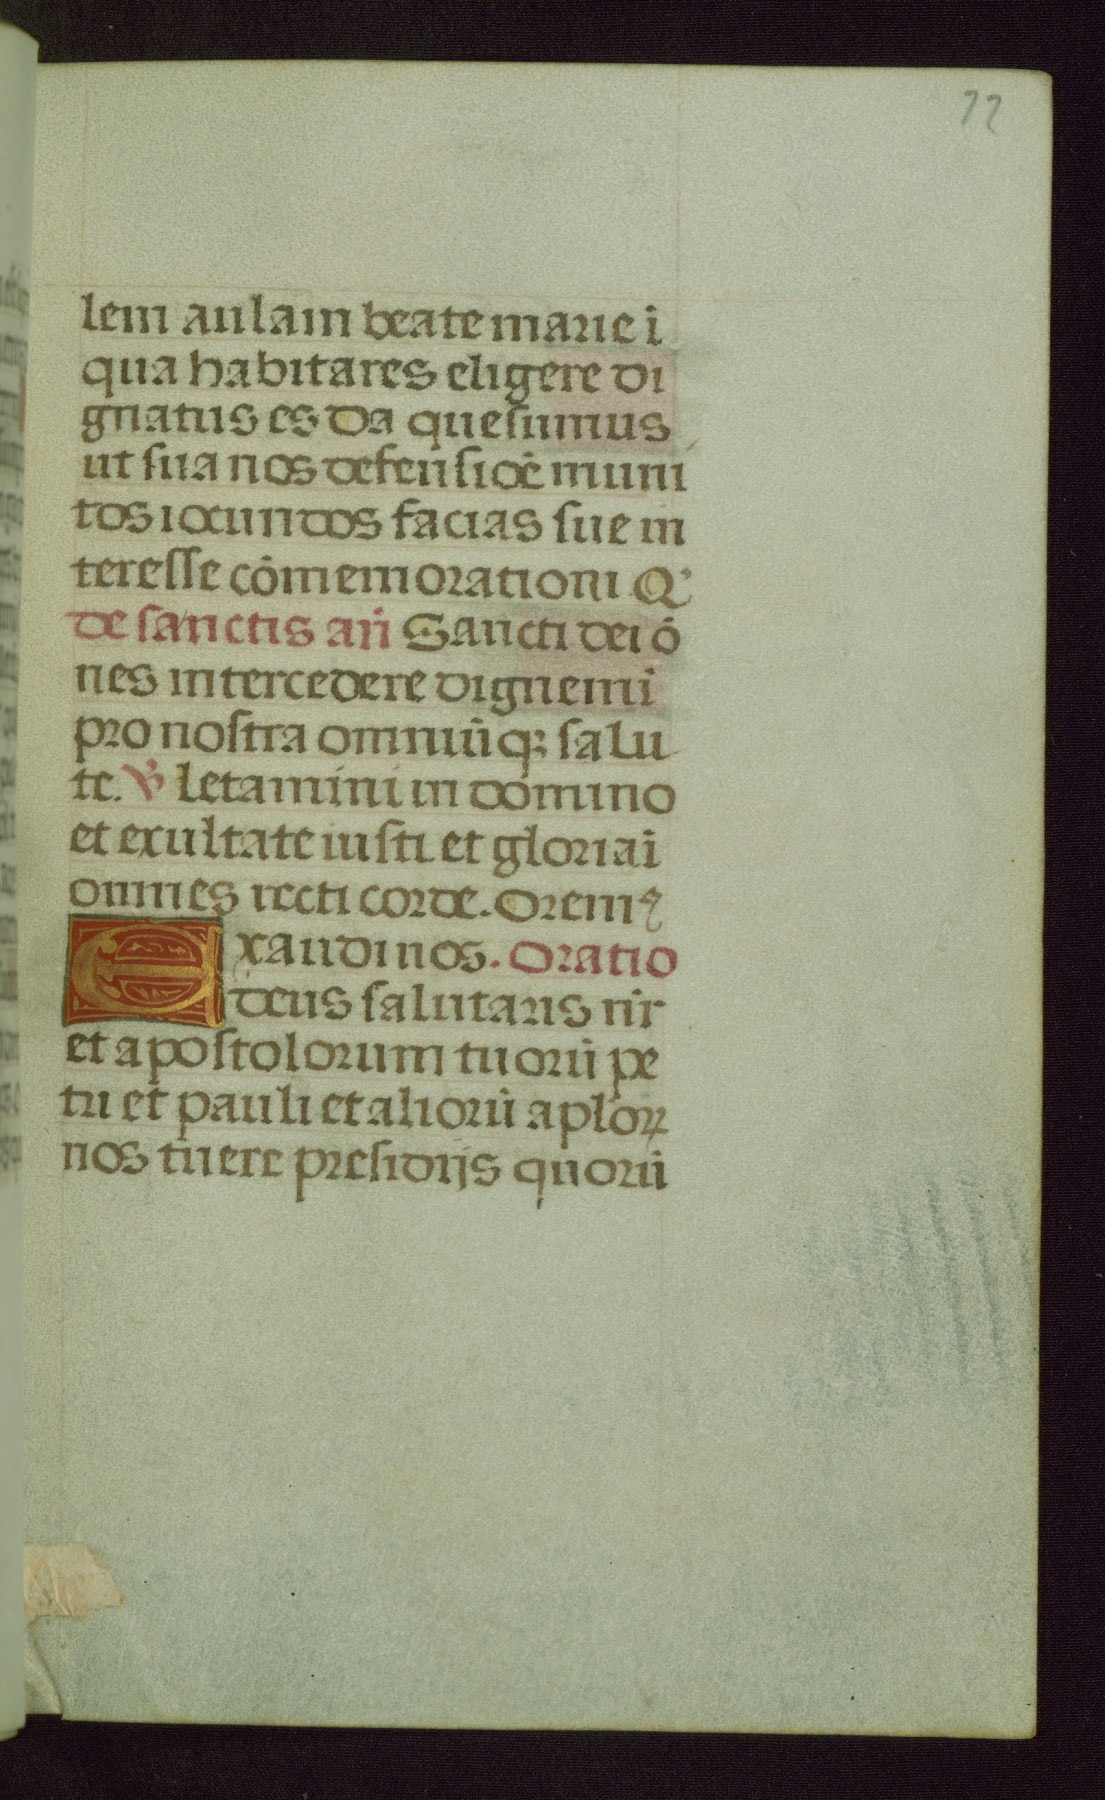 22
lem aulam beate marie ī
qua habitares eligere di
gnatus es da quesumus
ut sua nos defensiōe muni
tos iocundos facias sue in
teresse cōmemorationi Q'
de sanctis añ Sancti dei ō
nes intercedere dignemī
pro nostra omniūq; salu
te. ℣ letamini in domino
et exultate iusti et gloriaī
omnes recti corde. Oremꝰ
Exaudi nos. Oratio
deus salutaris nr̄
et apostolorum tuorū pe
tri et pauli et aliorū aplōꝝ
nos tuere presidijs quorū